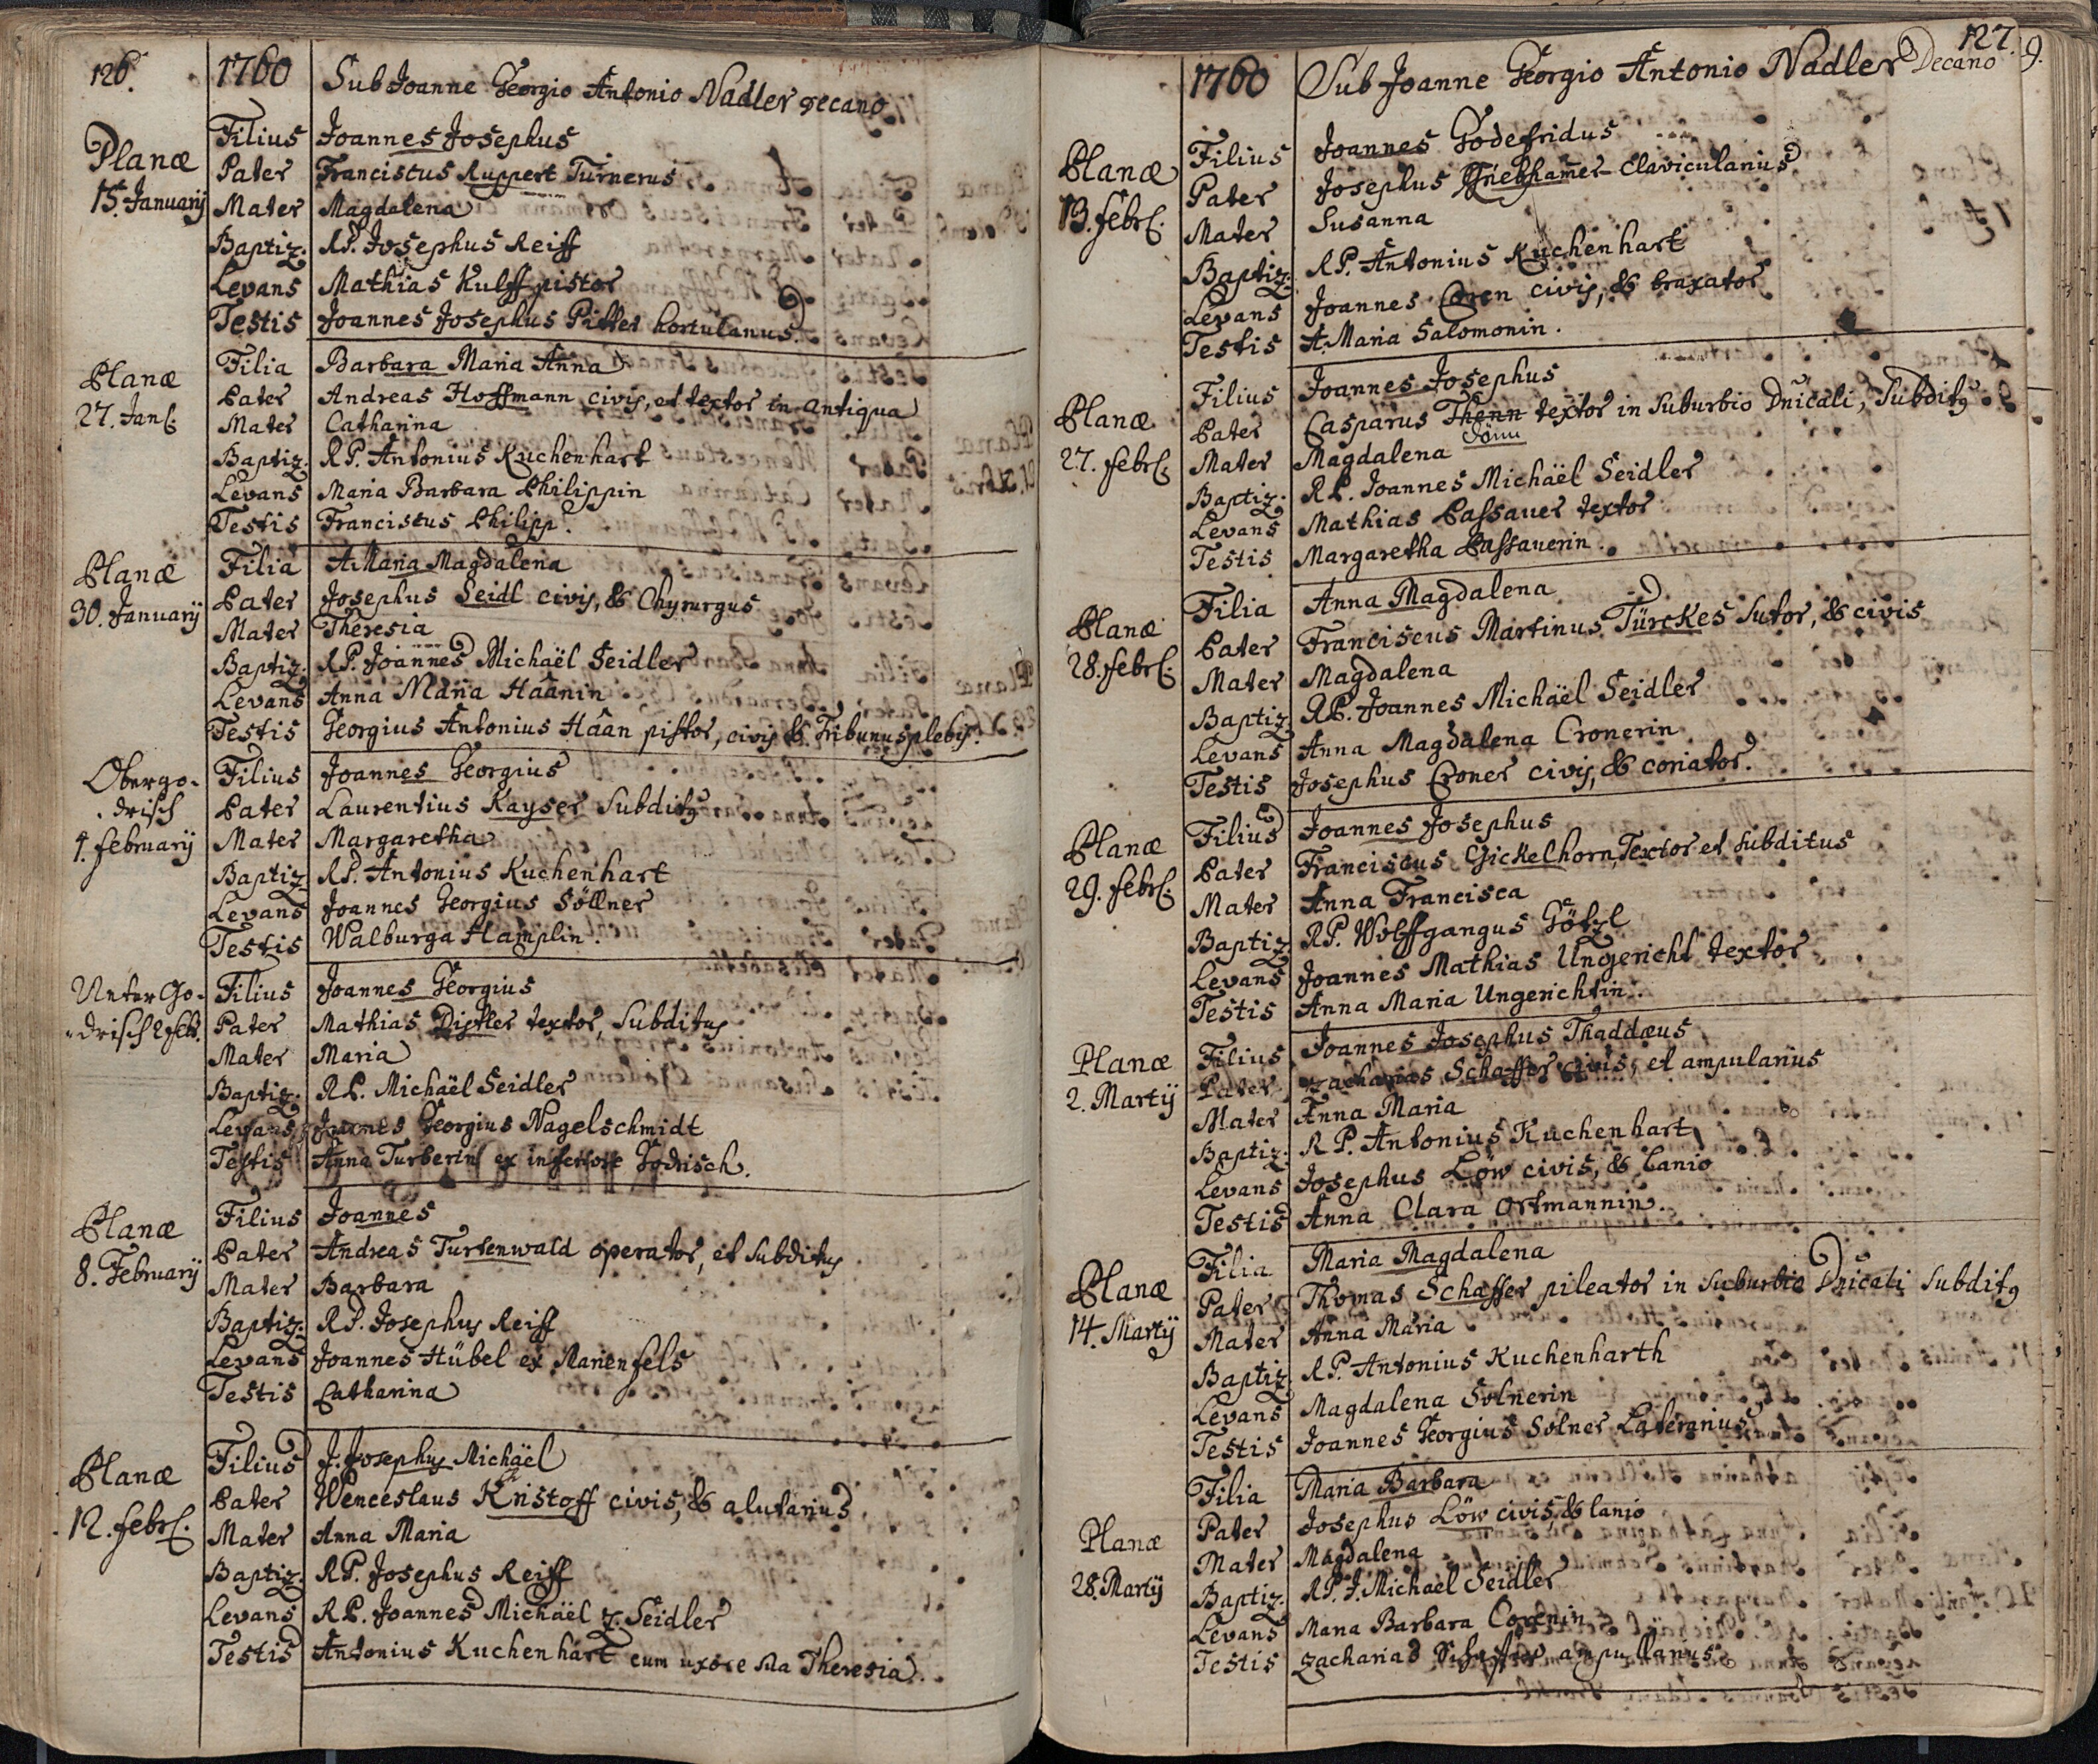 126. 1760 Sub Joanne Georgio Antonio Nadler Decano
Planæ Filius Joannes Josephus
15. Januarij Pater Franciscus Ruppert Turnerus
Mater Magdalena
Baptiz. R.P. Josephus Reiff
Levans Mathias Kulff pistor
Testis Joannes Josephus Pitter hortulanus.
Planæ Filia Barbara Maria Anna
27. Jan. Pater Andreas Hoffmann civis, et textor in antiqua
Mater Catharina
Baptiz. R.P. Antonius Kuchenhart
Levans Maria Barbara Philippin
Testis Franciscus Philipp.
Planæ Filia A. Maria Magdalena
30. Januarij Pater Josephus Seidl civis, & Chyrurgus
Mater Theresia
Baptiz. R.P. Joannes Michaël Seidler
Levans Anna Maria Haanin
Testis Georgius Antonius Haan pistor, civis & Tribunus plebis.
Obergo- Filius Joannes Georgius
drisch Pater Laurentius Kayser Subditq
4. februarij Mater Margaretha
Baptiz R.P. Antonius Kuchenhart
Levans Joannes Georgius Söllner
Testis Walburga Hamplin.
Unter Go- Filius Joannes Georgius
drisch 2 feb. Pater Mathias Distler textor, Subditus
Mater Maria
Baptiz. R.P. Michaël Seidler
Levans Georgius Nagelschmidt
Testis Anna Turberin ex inferiore Godrisch.
Planæ Filius Joannes
8. Februarij Pater Andreas Turtenwald operator, et Subditus
Mater Barbara
Baptiz. R.P. Josephus Reiff
Levans Joannes Hübel ex Marienfels
Testis Catharina
Planæ Filius J. Josephus Michaël
12. febr. Pater Wenceslaus Kristoff civis, & alutarius
Mater Anna Maria
Baptiz. R.P. Josephus Reiff
Levans R.P. Joannes Michaël Seidler
Testis Antonius Kuchenhart cum uxore sua Theresia.
127.
1760 Sub Joanne Georgio Antonio Nadler Decano
Planæ Filius Joannes Godefridus
13. febr. Pater Josephus Claviculanius
Mater Susanna
Baptiz. R.P. Antonius Kuchenhart
Levans Joannes Coren civis, & braxator
Testis A. Maria Salomonin.
Planæ Filius Joannes Josephus
27. febr. Pater Casparus Thenn textor in Suburbio Dnicali, Subditq
Mater Magdalena
Baptiz. R.P. Joannes Michaël Seidler
Levans Mathias Passauer textor
Testis Margaretha Passauerin.
Planæ Filia Anna Magdalena
28. febr. Pater Franciscus Martinus Türckes Sutor, & civis
Mater Magdalena
Baptiz. R.P. Joannes Michaël Seidler
Levans Anna Magdalena Cronerin
Testis Josephus Croner civis, & coriator.
Planæ Filius Joannes Josephus
29. febr. Pater Franciscus Gickelhorn, Textor et subditus
Mater Anna Francisca
Baptiz R.P. Wolffgangus Götzl
Levans Joannes Mathias Ungericht textor
Testis Anna Maria Ungerichtin.
Planæ Filius Joannes Josephus Thaddæus
2. Martij Pater Zacharias Schaffer civis, et ampularius
Mater Anna Maria
Baptiz. R.P. Antonius Kuchenhart
Levans Josephus Löw civis, & lanio
Testis Anna Clara Ortmannin.
Planæ Filia Maria Magdalena
14. Martij Pater Thomas Schaffer pileator in Suburbio Dnicali Subditq
Mater Anna Maria
Baptiz R.P. Antonius Kuchenharth
Levans Magdalena Solnerin
Testis Joannes Georgius Solner Laterarius
Planæ Filia Maria Barbara
28. Martij Pater Josephus Löw civis, & lanio
Mater Magdalena
Baptiz. R.P. J. Michael Seidler
Levans Maria Barbara Corenin
Testis Zacharias Schaffer ampullarius.